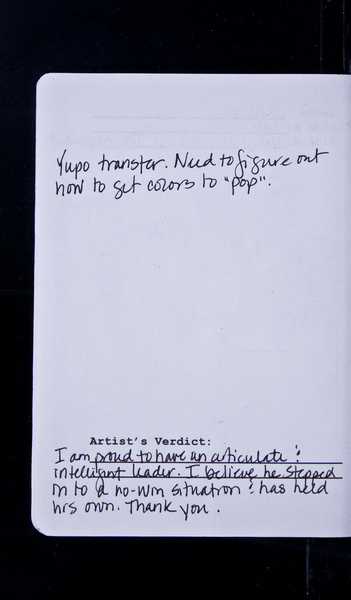 Yupo transfer. Need to figure out
how to get colors to "pop".
Artist's Verdict:
I am proud to have an articulate &
intelligent leader. I believe he stepped
in to a no-win situation & has held
his own. Thank you.